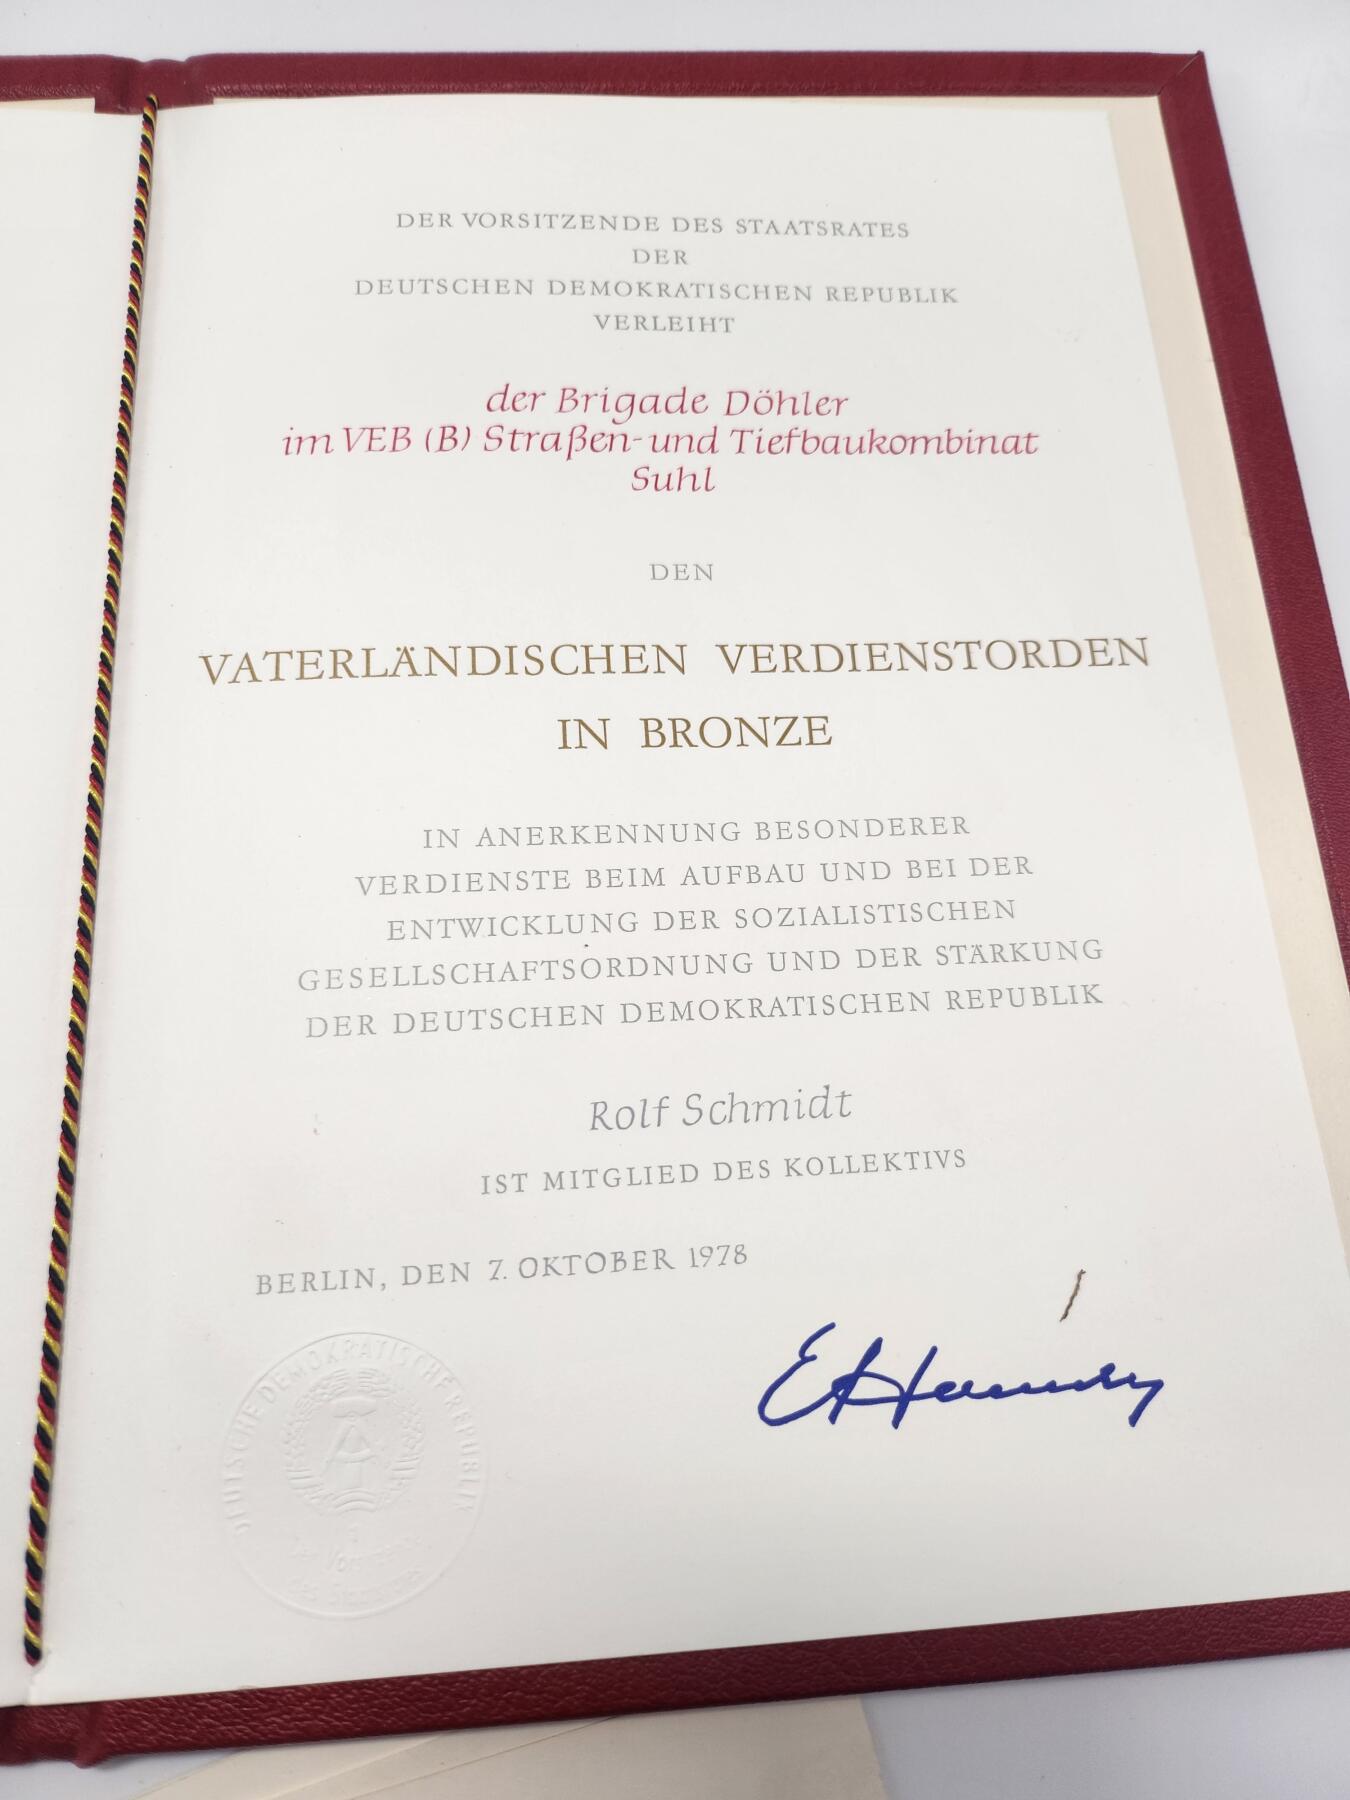 DER VORSITZENDE DES STAATSRATES
DER
DEUTSCHEN DEMOKRATISCHEN REPUBLIK
VERLEIHT
der Brigade Döhler
im VEB (B) Straßen- und Tiefbaukombinat
Suhl
DEN
VATERLÄNDISCHEN VERDIENSTORDEN
IN BRONZE
IN ANERKENNUNG BESONDERER
VERDIENSTE BEIM AUFBAU UND BEI DER
ENTWICKLUNG DER SOZIALISTISCHEN
GESELLSCHAFTSORDNUNG UND DER STÄRKUNG
DER DEUTSCHEN DEMOKRATISCHEN REPUBLIK
Rolf Schmidt
IST MITGLIED DES KOLLEKTIVS
BERLIN, DEN 7. OKTOBER 1978
DEUTSCHE DEMOKRATISCHE REPUBLIK